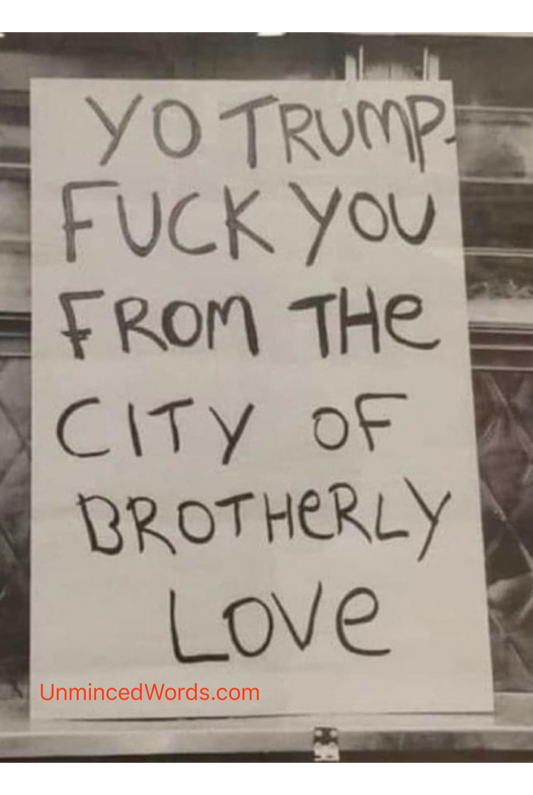 YO TRUMP-
FUCK YOU
FROM THe
CITY OF
BROTHeRLY
LOVe
UnmincedWords.com